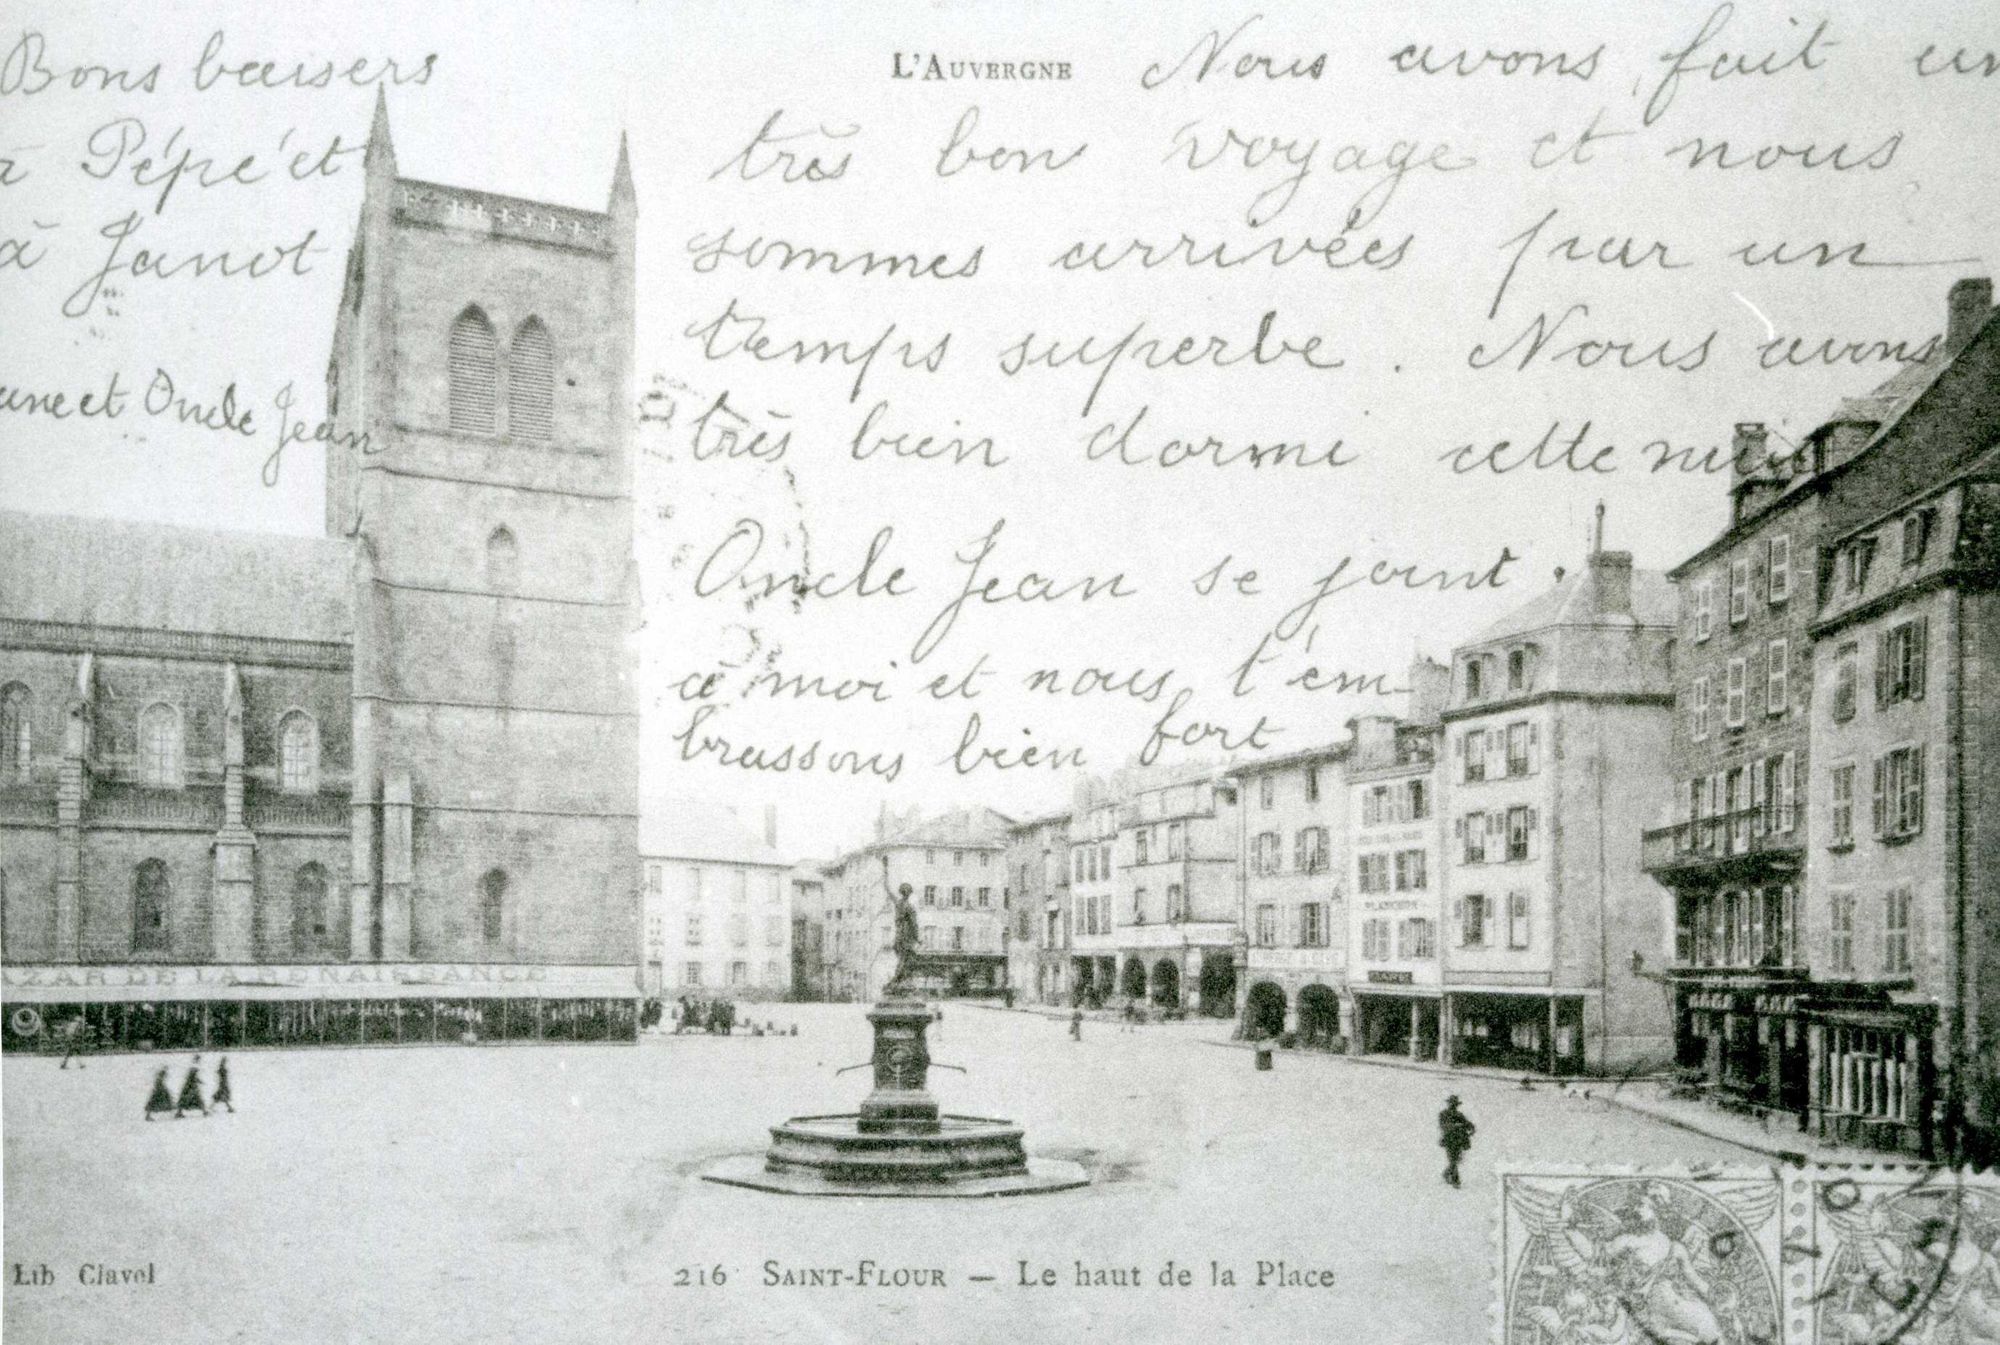 L'AUVERGNE
Bons baisers
à Pépé et
à Janot
et Oncle Jean
Nous avons fait un
très bon voyage et nous
sommes arrivées par un
temps superbe. Nous avons
très bien dormi cette nuit
Oncle Jean se joint.
a moi et nous t'em-
brassons bien fort
BAZAR DE LA RENAISSANCE
Lib Clavel
216 SAINT-FLOUR — Le haut de la Place